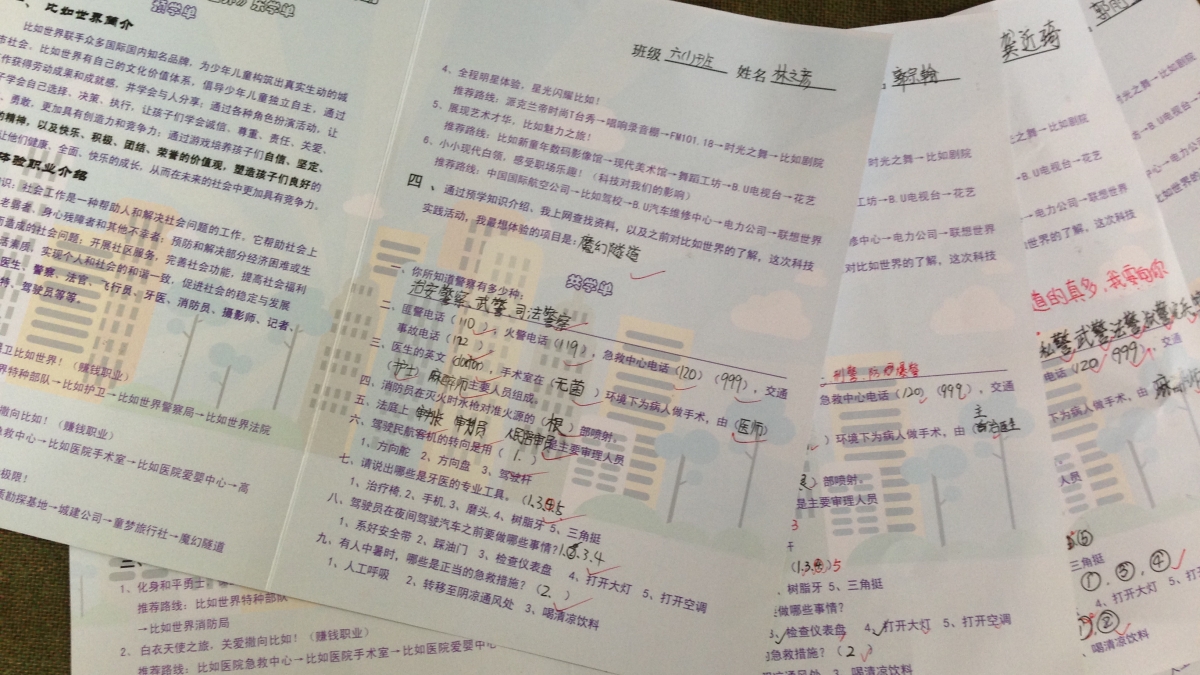 预学单
比如世界简介
比如世界联手众多国际国内知名品牌，为少年儿童构筑出真实生动的城
市社会。比如世界有自己的文化价值体系，倡导少年儿童独立自主，通过
作获得劳动成果和成就感，并学会与人分享；通过各种角色扮演活动，让
子学会自己选择、决策、执行，让孩子们学会诚信、尊重、责任、关爱、
勇敢，更加具有创造力和竞争力；通过游戏培养孩子们自信、坚定、
的精神，以及快乐、积极、团结、荣誉的价值观，塑造孩子们良好的
让他们健康、全面、快乐的成长，从而在未来的社会中更加具有竞争力。
体验职业介绍
识：社会工作是一种帮助人和解决社会问题的工作。它帮助社会上
老弱者、身心残障者和其他不幸者；预防和解决部分经济困难或生
而造成的社会问题；开展社区服务，完善社会功能，提高社会福利
活素质，实现个人和社会的和谐一致，促进社会的稳定与发展
医生、警察、法官、飞行员、牙医、消防员、摄影师、记者、
特、驾驶员等等。
卫比如世界！（赚钱职业）
界特种部队→比如护卫→比如世界警察局→比如世界法院
撒向比如！（赚钱职业）
急救中心→比如医院手术室→比如医院爱婴中心→高
极限！
质勘探基地→城建公司→童梦旅行社→魔幻隧道
班级 六(1)班 姓名 林之彦
4、全程明星体验，星光闪耀比如！
推荐路线：派克兰帝时尚T台秀→唱响录音棚→FM101.18→时光之舞→比如剧院
5、展现艺术才华，比如魅力之旅！
推荐路线：比如新童年数码影像馆→现代美术馆→舞蹈工坊→B.U电视台→花艺
6、小小现代白领，感受职场乐趣！（科技对我们的影响）
推荐路线：中国国际航空公司→比如驾校→B.U汽车维修中心→电力公司→联想世界
四、通过预学知识介绍、我上网查找资料，以及之前对比如世界的了解，这次科技
实践活动，我最想体验的项目是：魔幻隧道
共学单
一、你所知道警察有多少种：
治安警察 武警 司法警察
二、匪警电话（110），火警电话（119），急救中心电话（120）（999），交通
事故电话（122）。
三、医生的英文（doctor），手术室在（无菌）环境下为病人做手术，由（医师）
（护士）麻醉师主要人员组成。
四、消防员在灭火时水枪对准火源的（根）部喷射。
五、法庭上 审判长 审判员 人民陪审员主要审理人员
六、驾驶民航客机的转向是用（1.）
1、方向舵 2、方向盘 3、驾驶杆
七、请说出哪些是牙医的专业工具。（1.3.4.5
1、治疗椅、2、手机、3、磨头、4、树脂牙 5、三角挺
八、驾驶员在夜间驾驶汽车之前要做哪些事情？1.2.3.4
1、系好安全带 2、踩油门 3、检查仪表盘 4、打开大灯 5、打开空调
九、有人中暑时，哪些是正当的急救措施？（2）
1、人工呼吸 2、转移至阴凉通风处 3、喝清凉饮料
1、化身和平勇士，
推荐路线：比如世界特种部队
→比如世界消防局
2、白衣天使之旅，关爱撒向比如！（赚钱职业）
推荐路线：比如医院急救中心→比如医院手术室→比如医院爱婴中心
时光之舞→比如剧院
工坊→B.U电视台→花艺
修中心→电力公司→联想世界
对比如世界的了解，这次科技
急救中心电话（120）（999），交通
）环境下为病人做手术，由（主
）部喷射。
是主要审理人员
（1.3.4）5
树脂牙 5、三角挺
做哪些事情？
3、检查仪表盘 4、打开大灯 5、打开空调
急救措施？（2
3、喝清凉饮料
龚近琦
之舞→比如剧院
B.U电视台→花艺
→电力公司→联想世界
世界的了解，这次科技
道的真多，我要向你
电话（120）（999），交通
下为病人做手术，由
人员
三角挺
①，③，④
4、打开大灯 5、打
②
喝清凉饮料